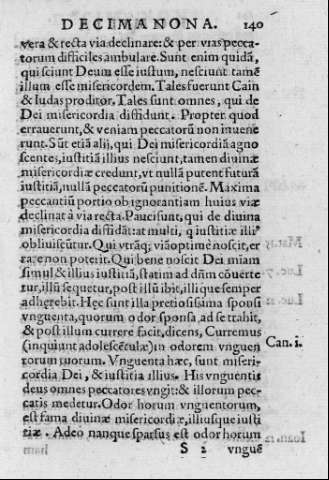 DECIMANONA. 140
vera & recta via declinare: & per vias pecca-
torum difficiles ambulare. Sunt enim quidã,
qui sciunt Deum esse iustum, nesciunt tamẽ
illum esse misericordem. Tales fuerunt Cain
& Iudas proditor. Tales sunt omnes, qui de
Dei misericordia diffidunt. Propter quod
errauerunt, & veniam peccatorũ non inuene
runt. Sũt etiã alij, qui Dei misericordiã agno
scentes, iustitiã illius nesciunt, tamen diuinæ
misericordiæ credunt, vt nullã putent futurã
iustitiã, nullã peccatorũ punitionẽ. Maxima
peccantiũ portio ob ignorantiam huius viæ
declinat à via recta. Pauci sunt, qui de diuina
misericordia diffidãt: at multi, q iustitiæ illi⁹
obliuiscũtur. Qui vtraq; viã optimè noscit, er
rare non poterit. Qui bene noscit Dei miam
simul & illius iustitiã, statim ad dñm cõuerte
tur, illũ sequetur, post illũ ibit, illique semper
adhęrebit. Hęc sunt illa pretiosissima sponsi
vnguenta, quorum odor sponsã ad se trahit,
& post illum currere facit, dicens, Curremus
(inquiunt adolescẽtulæ) in odorem vnguen Can. 1.
torum tuorum. Vnguenta hæc, sunt miseri-
cordia Dei, & iustitia illius. His vnguentis
deus omnes peccatores vngit: & illorum pec-
catis medetur. Odor horum vnguentorum,
est fama diuinæ misericordiæ, illiusque iusti
tiæ. Adeo nanque sparsus est odor horum
S 2 vnguẽ